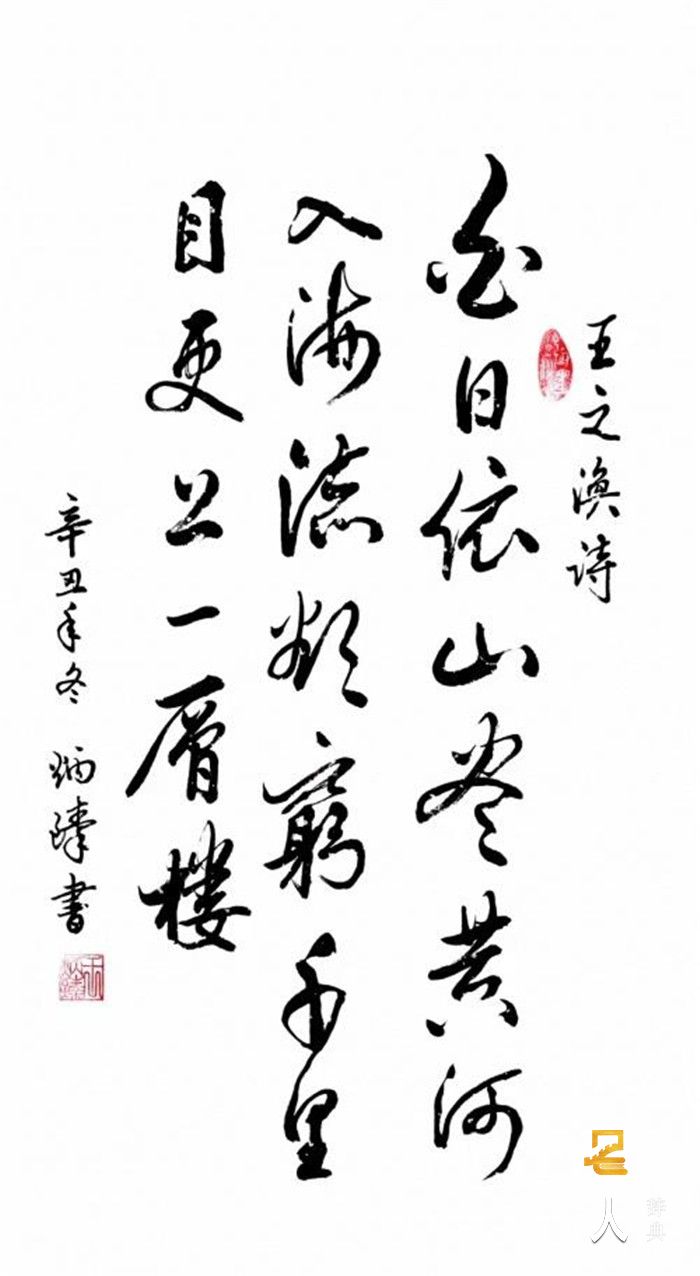 王之涣诗
白日依山尽黄河
入海流欲窮千里
目更上一層楼
辛丑年冬 炳臻書
名人辞典